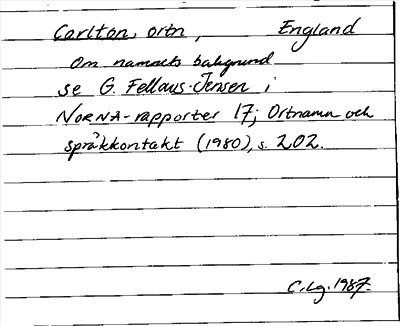 Carlton, ortn, England
Om namnets bakgrund
se G. Fellows-Jensen i
NORNA-rapporter 17; Ortnamn och
språkkontakt (1980), s. 202.
C.Lg. 1987.